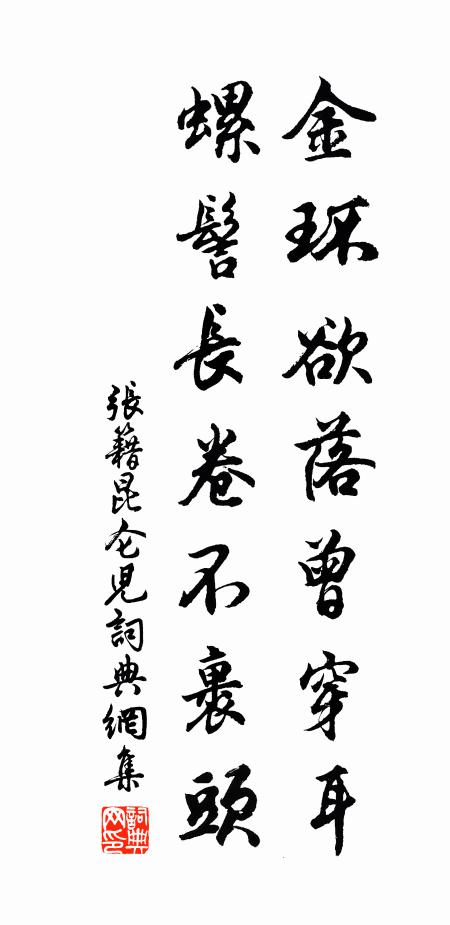 金环欲落曾穿耳
螺髻长卷不裹頭
張籍昆仑児詞典網集
詞典网印